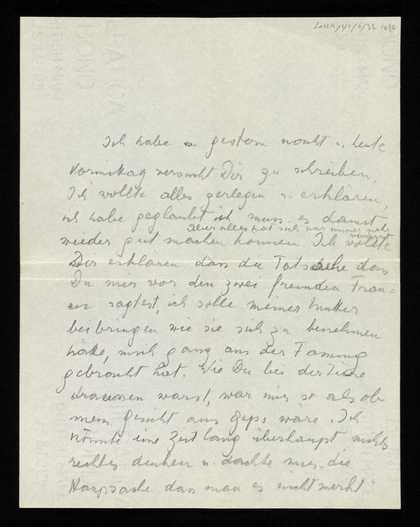 Ich habe gestern nacht u. heute
Vormittag versucht Dir zu schreiben.
Ich wollte alles zerlegen u. erklären,
ich habe geglaubt ich muss es damit
aber alles hat sich nur immer mehr
wieder gut machen können. Ich wollte
Dir erklären dass die Tatsache dass
Du mir vor den zwei fremden Frau=
en sagtest, ich solle meiner Mutter
beibringen wie sie sich zu benehmen
hätte, mich ganz aus der Fassung
gebracht hat. Wie Du bei der Türe
draussen warst, war mir so als ob
mein Gesicht aus Gips wäre. Ich
konnte eine Zeit lang überhaupt nichts
rechtes denken u. dachte nur, die
Hauptsache dass man es nicht merkt